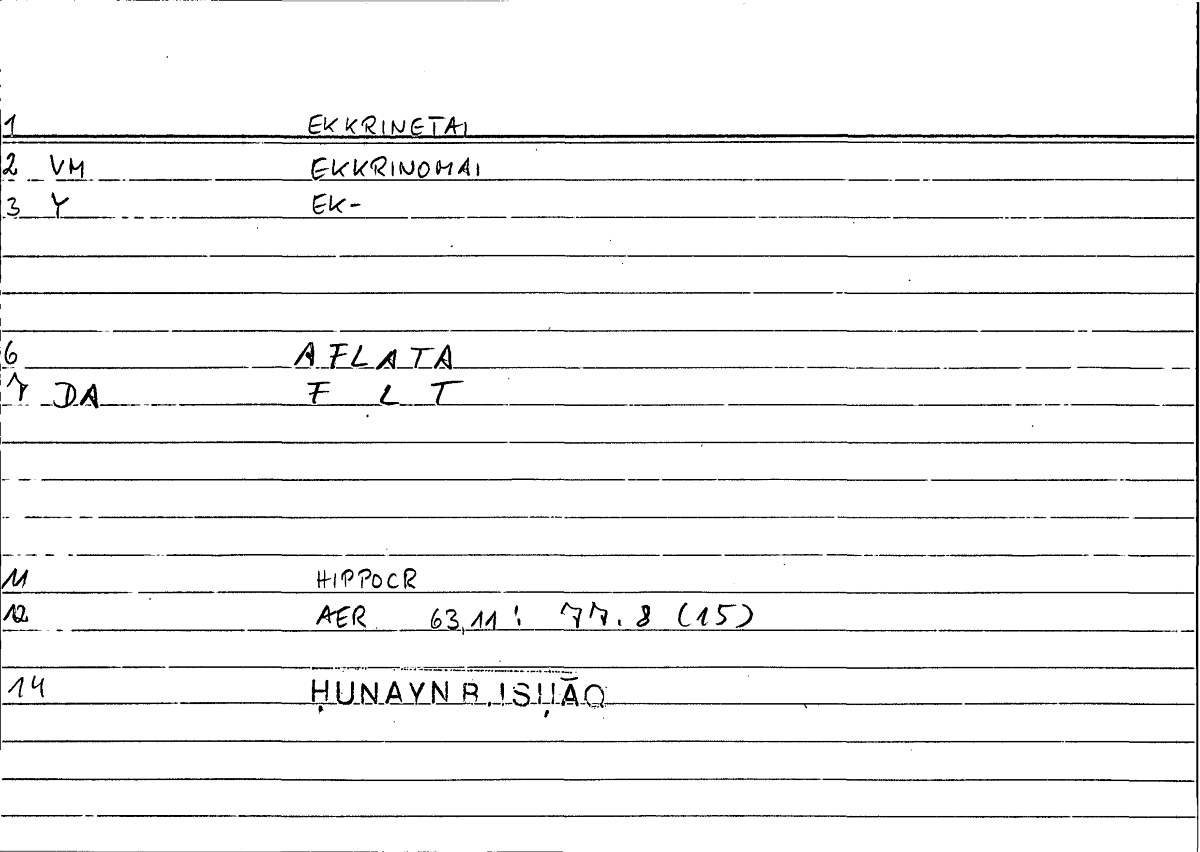 1 EKKRINETAI
2 VM EKKRINOMAI
3 Y EK-
6 AFLATA
7 DA F L T
11 HIPPOCR
12 AER 63,11 : 77.8 (15)
14 ḤUNAYN B. ISḤĀQ